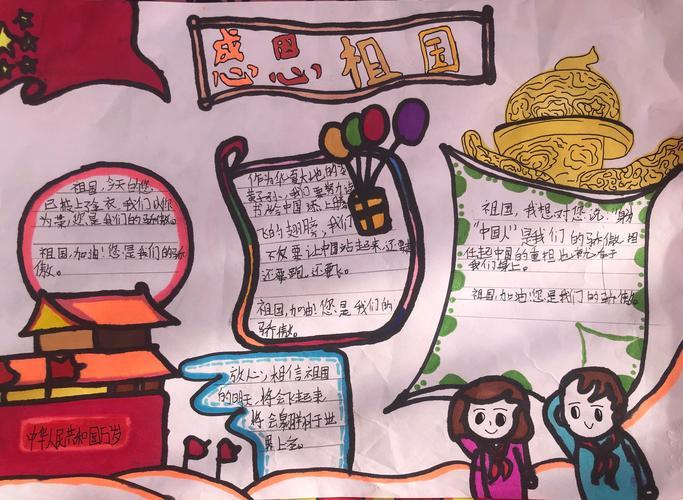 感恩祖国
祖国,今天的您,
已披上了金衣,我们以你
为荣,您是我们的骄傲。
祖国,加油!您是我们的骄
傲。
作为华夏大地的
黄子孙,我们要努力读
书给中国添上腾
飞的翅膀,我们
不仅要让中国站起来,还要
还要跑,还要飞。
祖国,加油!您是我们的
骄傲。
祖国,我想对您说:身
"中国人"是我们的骄傲,担
任起中国的重担也就落于
我们身上。
祖国加油!您是我们的骄傲。
放心,相信祖国
的明天,将会飞起来
将会翱翔于世
界上空。
中华人民共和国万岁